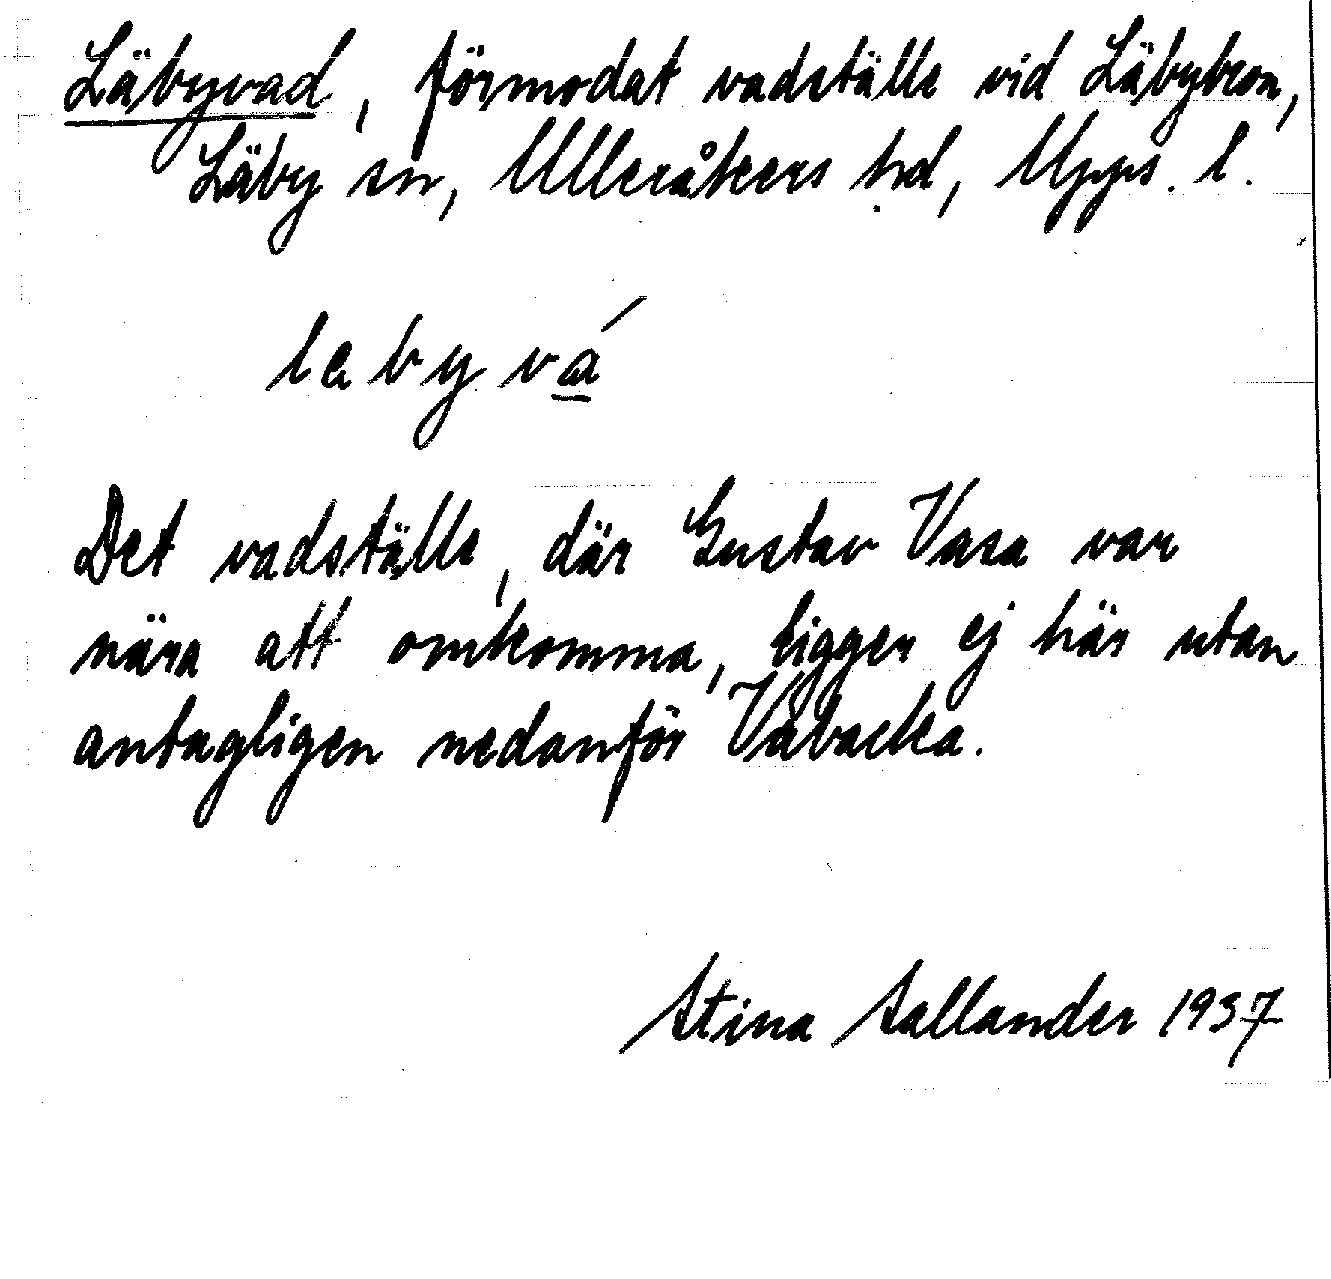 Läbyvad, förmodat vadställe vid Läbybron,
Läby sn, Ulleråkers hd, Upps. l.
lebyvá
Det vadställe, där Gustav Vasa var
nära att omkomma, ligger ej här utan
antagligen nedanför Vabacka.
Stina Sallander 1937